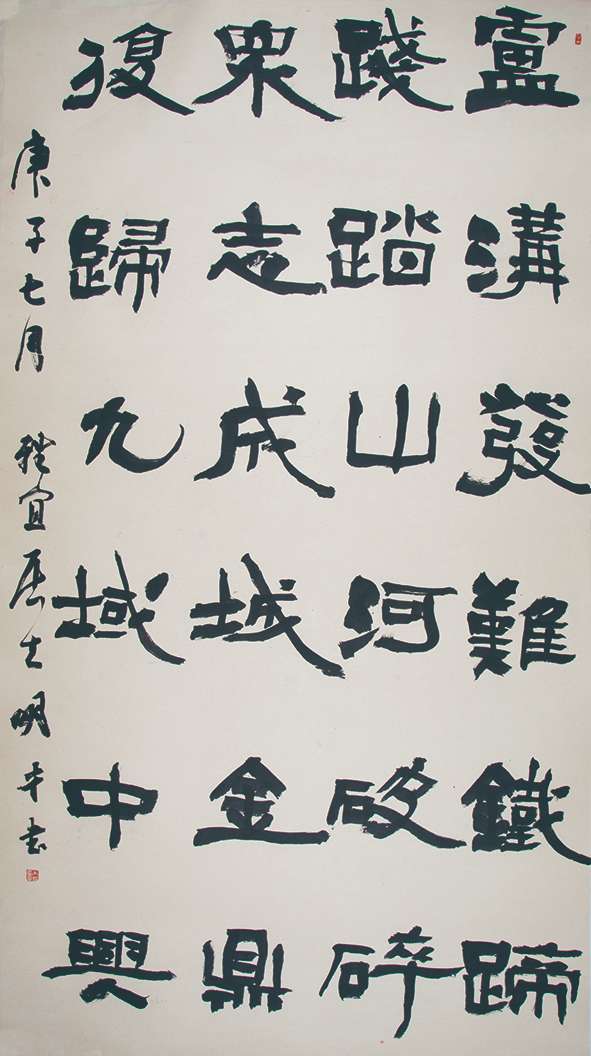 盧溝發難鐵蹄
踐踏山河破碎
眾志成城金鼎
復歸九域中興
庚子七月 宜居士明書